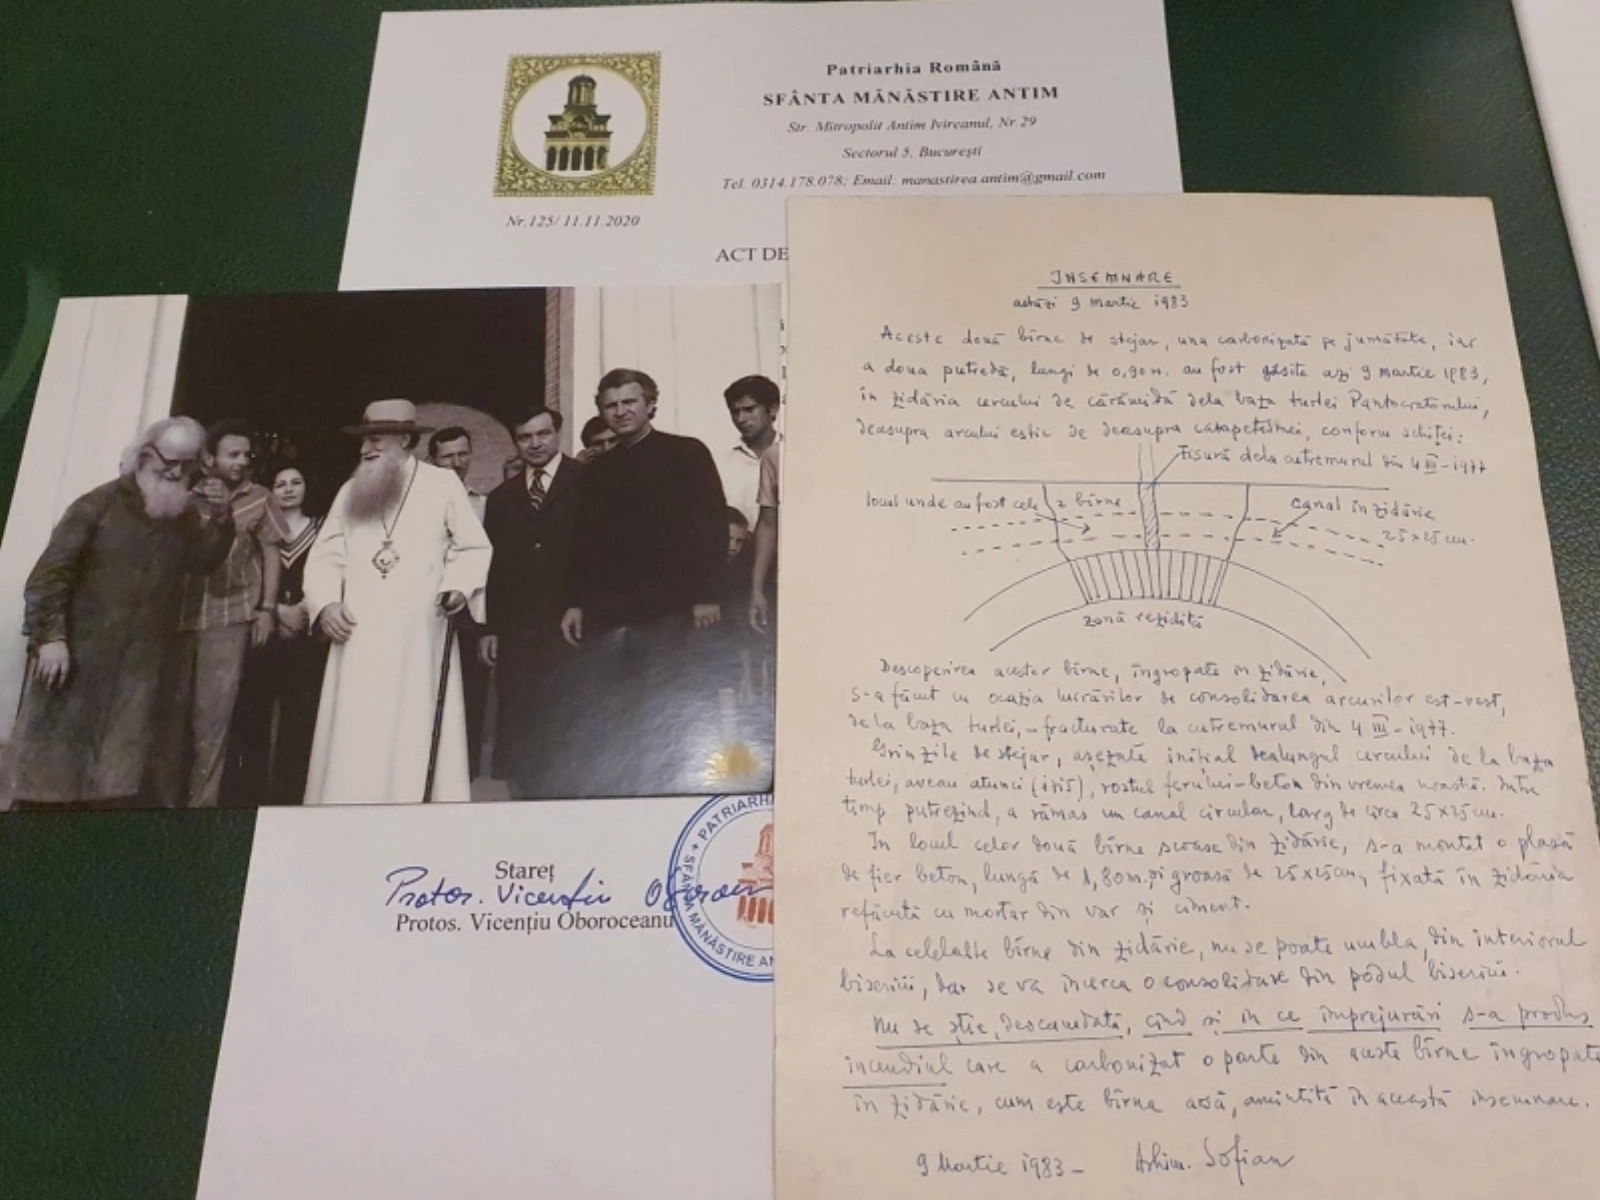 Patriarhia Română
SFÂNTA MĂNĂSTIRE ANTIM
Str. Mitropolit Antim Ivireanul, Nr.29
Sectorul 5, București
Tel. 0314.178.078; Email: manastirea.antim@gmail.com
Nr.125/ 11.11.2020
ACT DE
INSEMNARE
astăzi 9 martie 1983
Aceste două bîrne de stejar, una carbonizată pe jumătate, iar
a doua putredă, lungi de 0,90 m. au fost găsite azi 9 martie 1983,
în zidăria cercului de cărămidă dela baza turlei Pantocratorului,
deasupra arcului estic de deasupra catapetesmei, conform schiței:
Fisură dela cutremurul din 4 III-1977
locul unde au fost cele 2 bîrne
canal în zidărie
25x25 cm.
zonă rezidită
Descoperirea acestor bîrne, îngropate în zidărie,
s-a făcut cu ocazia lucrărilor de consolidarea arcurilor est-vest,
de la baza turlei, - fracturate la cutremurul din 4 III-1977.
Grinzile de stejar, așezate inițial dealungul cercului de la baza
turlei, aveau atunci (1715), rostul ferului-beton din vremea noastră. Între
timp putrezind, a rămas un canal circular, larg de circa 25x25 cm.
In locul celor două bîrne scoase din zidărie, s-a montat o plasă
de fier beton, lungă de 1,80 m. și groasă de 25x25 cm, fixată în zidăria
refăcută cu mortar din var si ciment.
La celelalte bîrne din zidărie, nu se poate umbla, din interiorul
bisericii, dar se va încerca o consolidare din podul bisericii.
Nu se știe, deocamdată, cînd si in ce împrejurări s-a produs
incendiul care a carbonizat o parte din aceste bîrne îngropate
în zidărie, cum este bîrna asta, amintită în această însemnare.
9 Martie 1983 - Arhim. Sofian
Stareț
Protos. Vicențiu Oboroceanu
Protos. Vicențiu Oboroceanu
PATRIARH
SFÂNTA MĂNĂSTIRE AN